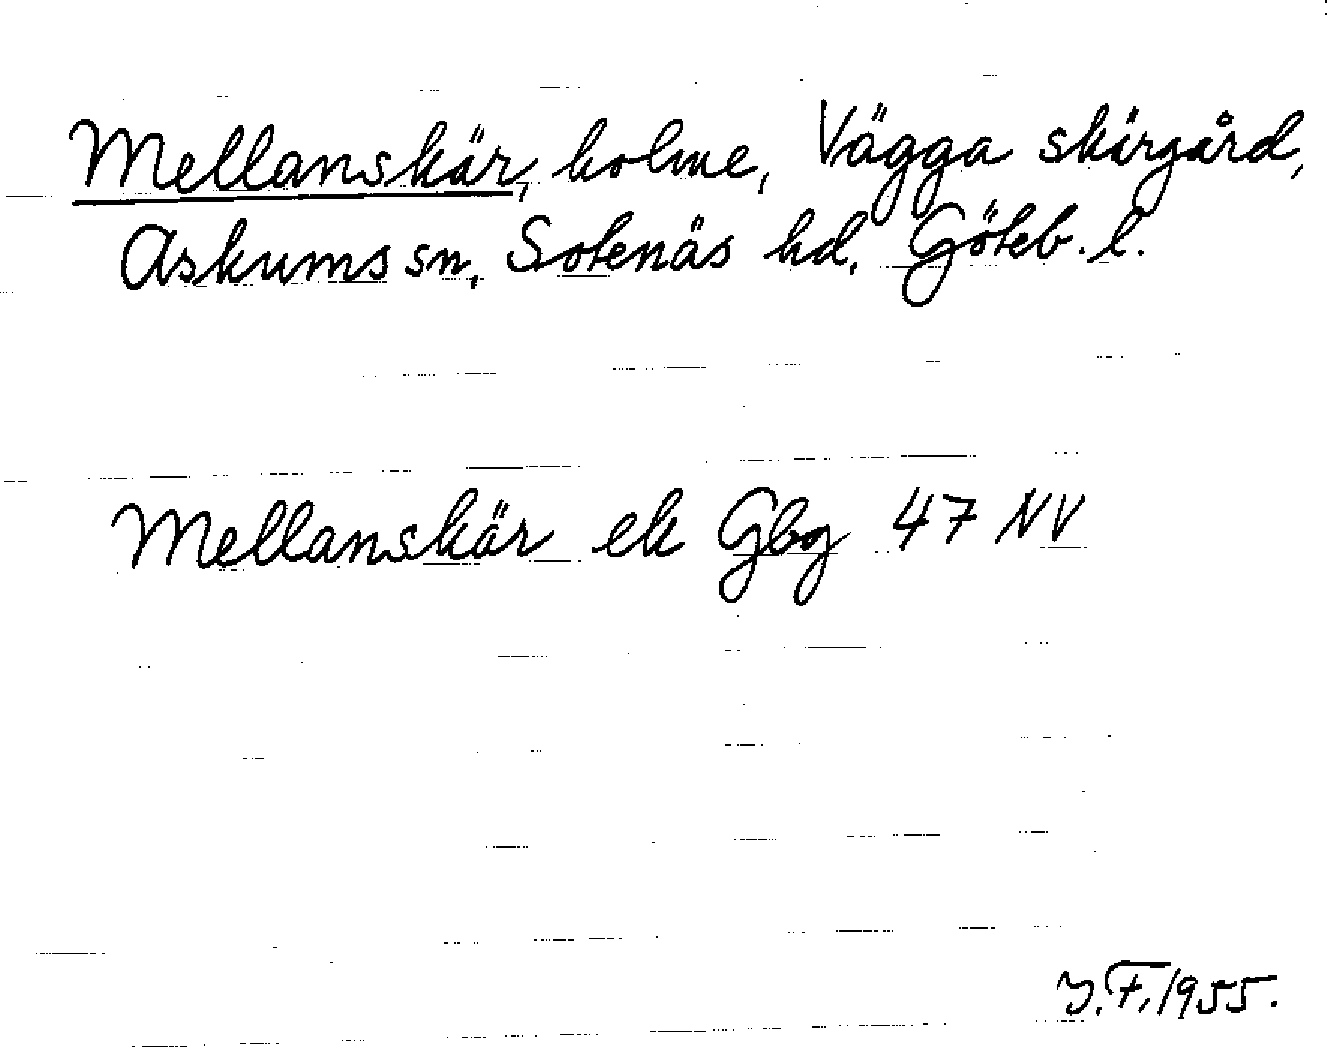 Mellanskär, holme, Vägga skärgård,
Askums sn, Sotenäs hd, Göteb. l.
Mellanskär ek Gbg 47 NV
J.F. 1955.